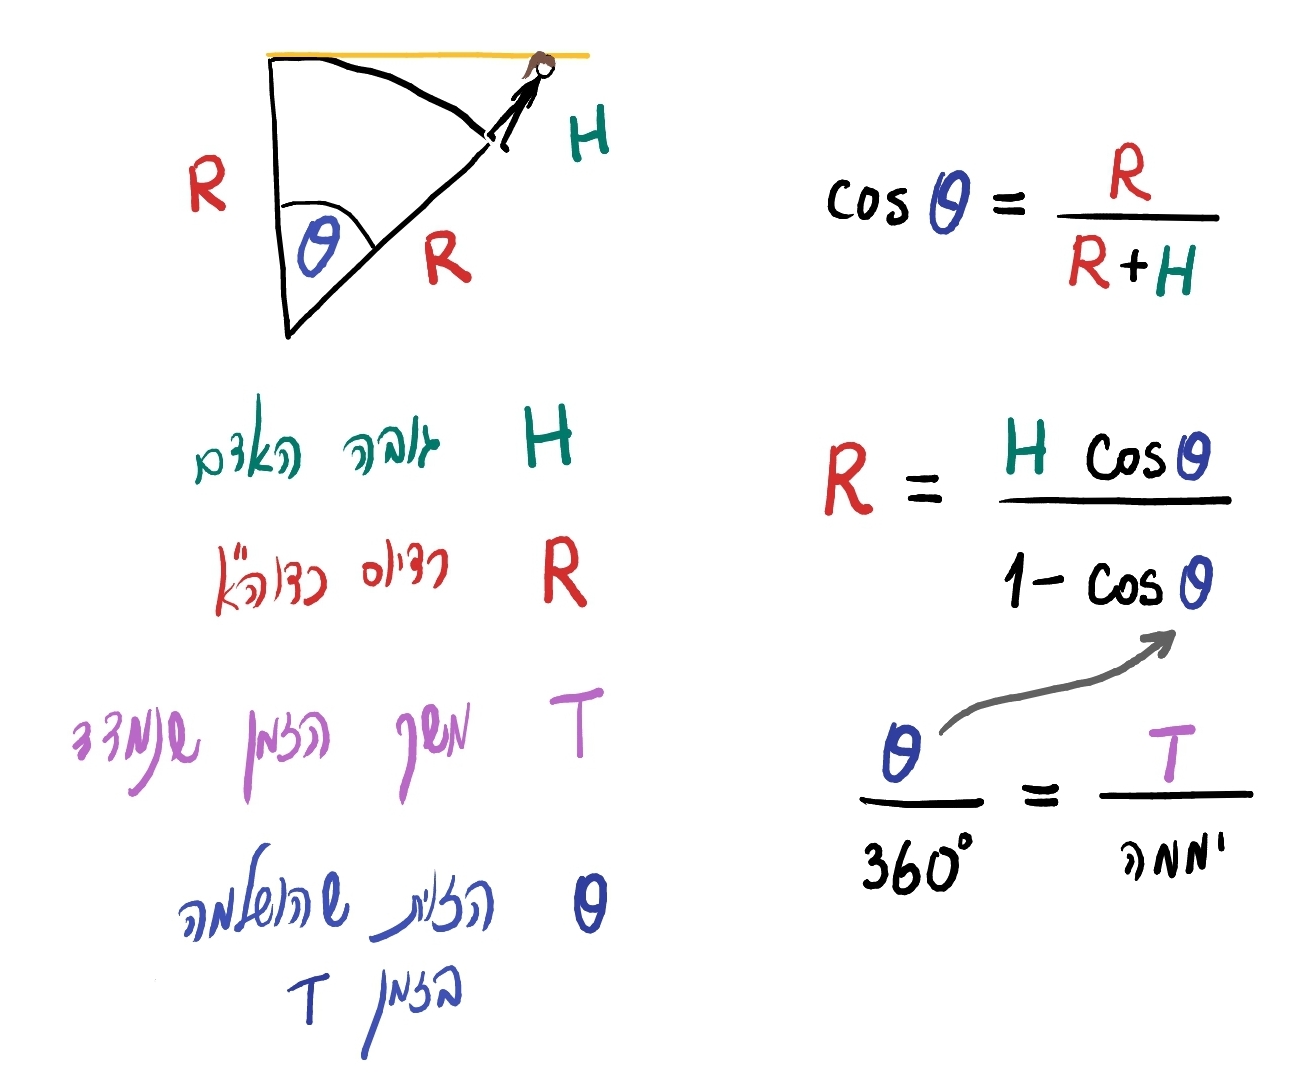 R
H
θ
R
cos θ = R / R + H
H גובה האדם
R רדיוס כדוה"א
T משך הזמן שנמדד
θ הזוית שהושלמה
בזמן T
R = H cos θ / 1 - cos θ
θ / 360° = T / יממה